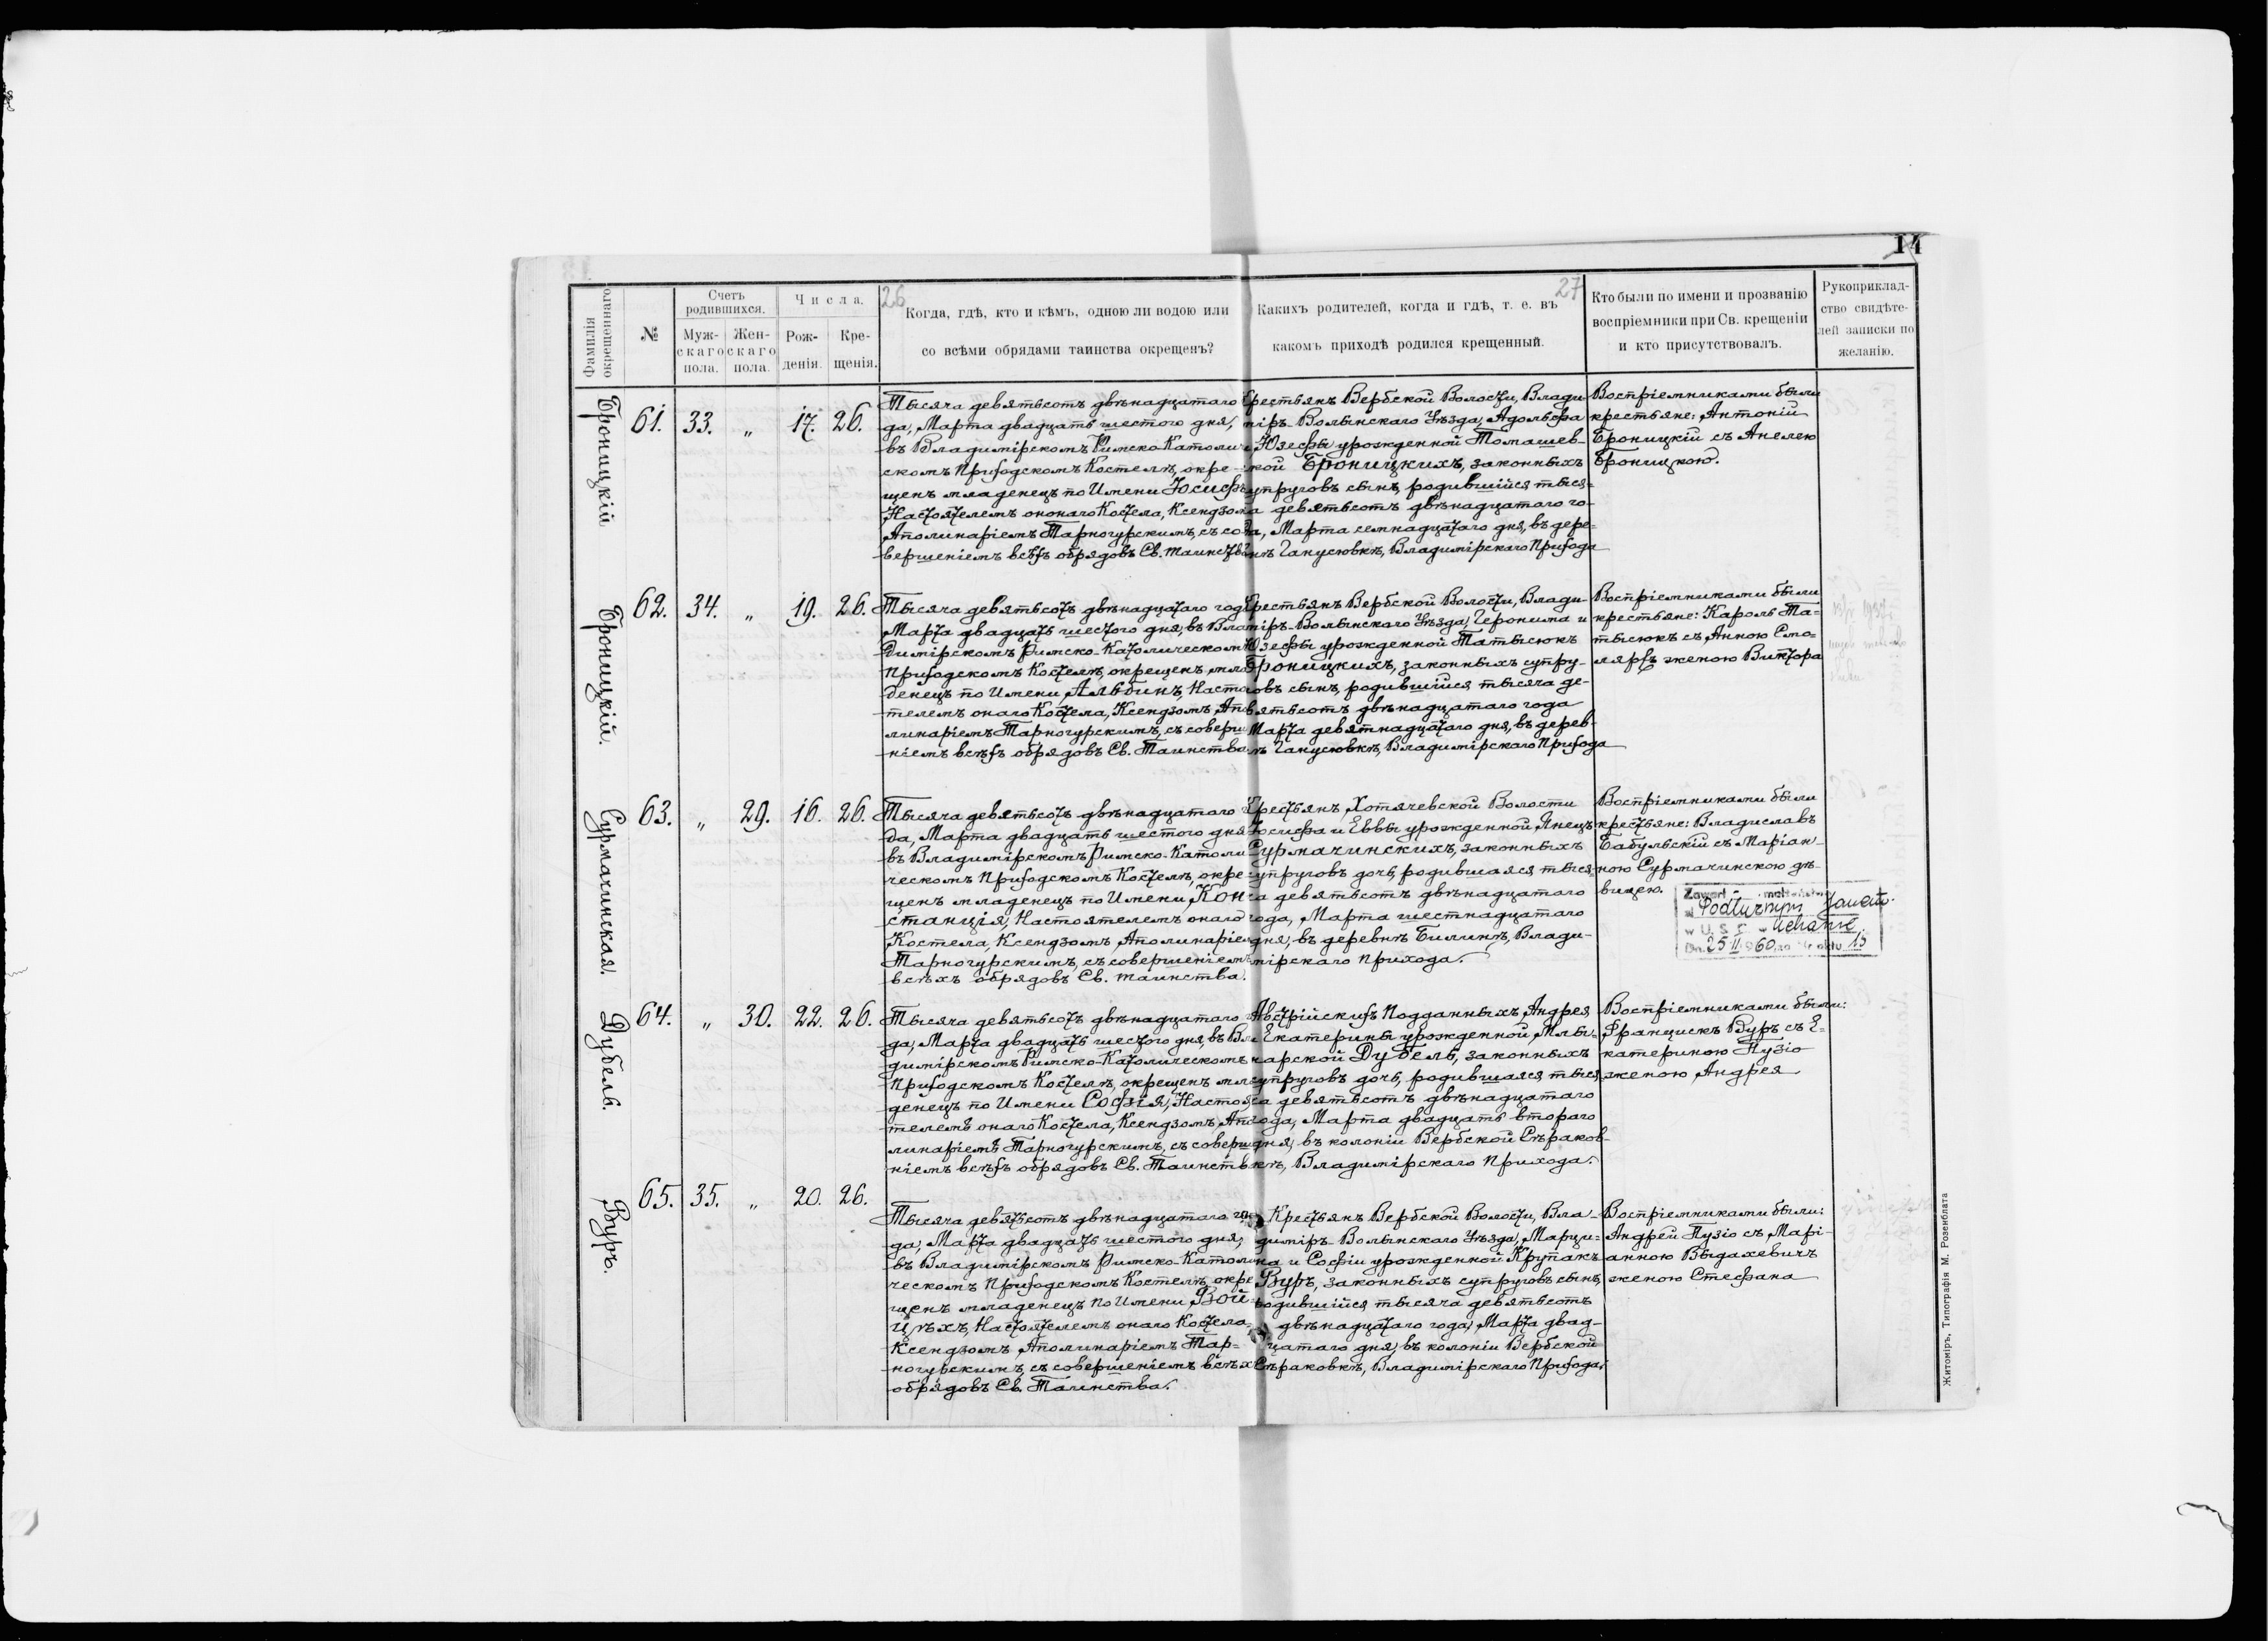 14
26
27
Фамилія окрещеннаго
№
Счетъ родившихся.
Муж-скаго пола.
Жен-скаго пола.
Числа.
Рож-денія.
Кре-щенія.
Когда, гдѣ, кто и кѣмъ, одною ли водою или
со всѣми обрядами таинства окрещенъ?
Какихъ родителей, когда и гдѣ, т. е. въ
какомъ приходѣ родился крещенный.
Кто были по имени и прозванію
воспріемники при Св. крещеніи
и кто присутствовалъ.
Рукоприклад-
ство свидѣте-
лей записки по
желанію.
Броницкій
61. 33. „ 17. 26.
Тысяча девятьсотъ двѣнадцатаго
да, Марта двадцать шестого дня,
въ Владимірскомъ Римско Католиче
скомъ Приходскомъ Костелѣ, окре-
щенъ младенецъ по Имени Юсифъ
Настоятелемъ ононаго Костела, Ксендзом
Аполинаріемъ Тарногурскимъ, съ со
вершеніемъ всѣхъ обрядовъ Св. таинства
крестьянъ Вербской Волости, Влади
міръ-Волынскаго Уѣзда, Адольфа
Юзефы урожденной Томашев-
кой Броницкихъ, законныхъ
упруговъ сынъ, родившійся тыся-
а девятьсотъ двѣнадцатаго го-
да, Марта семнадцатаго дня, въ дере-
нѣ Ганусювкѣ, Владимірскаго Прихода
Воспріемниками были
крестьяне: Антоній
Броницкій съ Анелею
Броницкою.
Броницкій.
62. 34. „ 19. 26.
Тысяча девятьсотъ двѣнадцатаго года
Марта двадцать шестого дня, въ Вла
димірскомъ Римско-Католическомъ
Приходскомъ Костелѣ, окрещенъ мла
денецъ по Имени Альбинъ, Настоя
телемъ онаго Костела, Ксендзомъ Апо
линаріемъ Тарногурскимъ, съ соверше
ніемъ всѣхъ обрядовъ Св. Таинства
крестьянъ Вербской Волости, Влади-
міръ-Волынскаго Уѣзда, Геронима и
Юзефы урожденной Татысюкъ
Броницкихъ, законныхъ супру-
овъ сынъ, родившійся тысяча де-
вятьсотъ двѣнадцатаго года
Марта девятнадцатаго дня, въ дерев-
ѣ Ганусювкѣ, Владимірскаго Прихода
Воспріемниками были
крестьяне: Кароль Та-
тысюкъ съ Анною Смо-
ляръ женою Виктора
Сурмачинская.
63. „ 29. 16. 26.
Тысяча девятьсотъ двѣнадцатаго
да, Марта двадцать шестого дня
въ Владимірскомъ Римско-Католи
ческомъ Приходскомъ Костелѣ, окре-
щенъ младенецъ по Имени Кон-
станція, Настоятелемъ онаго
Костела, Ксендзомъ Аполинаріем
Тарногурскимъ, съ совершеніемъ
всѣхъ обрядовъ Св. таинства.
Крестьянъ Хотячевской Волости
Юсифа и Еввы урожденной Янецъ
Сурмачинскихъ, законныхъ
супруговъ дочь, родившаяся тыся-
а девятьсотъ двѣнадцатаго
года, Марта шестнадцатаго
дня, въ деревнѣ Билинѣ, Влади-
мірскаго прихода.
Воспріемниками были
крестьяне: Владиславъ
Бабульскій съ Маріан-
ною Сурмачинскою дѣ-
вицею.
Zawarł
w Podturzyni
w U. S. C. w Uchanie
Dn. 25 II 1960 za Nr aktu 15
Дубель.
64. „ 30. 22. 26.
Тысяча девятьсотъ двѣнадцатаго
да, Марта двадцать шестого дня, въ Вла
димірскомъ Римско-Католическомъ
Приходскомъ Костелѣ, окрещенъ мла
денецъ по Имени Софія, Настоя
телемъ онаго Костела, Ксендзомъ Апо
линаріемъ Тарногурскимъ, съ соверше
ніемъ всѣхъ обрядовъ Св. Таинства
Австрійскихъ Подданныхъ Андрея
Екатерины урожденной Млы-
нарской Дубель, законныхъ
супруговъ дочь, родившаяся тыся
ча девятьсотъ двѣнадцатаго
года, Марта двадцать второго
дня, въ колоніи Вербской Сѣраков-
кѣ, Владимірскаго прихода.
Воспріемниками были:
Францискъ Вуръ съ Е-
катериною Пузіо
женою Андрея
Вуръ.
65. 35. „ 20. 26.
Тысяча девятьсотъ двѣнадцатаго го
да, Марта двадцать шестого дня,
въ Владимірскомъ Римско-Католи
ческомъ Приходскомъ Костелѣ, окре
щенъ младенецъ по Имени Вой-
цѣхъ, Настоятелемъ онаго Костела
Ксендзомъ Аполинаріемъ Тар-
ногурскимъ, съ совершеніемъ всѣхъ
обрядовъ Св. Таинства.
Крестьянъ Вербской Волости, Вла-
диміръ-Волынскаго Уѣзда, Марци-
на и Софіи урожденной Крупакъ
Вуръ, законныхъ супруговъ сынъ,
родившійся тысяча девятьсотъ
двѣнадцатаго года, Марта двад-
цатаго дня, въ колоніи Вербской
Сѣраковкѣ, Владимірскаго Прихода.
Воспріемниками были:
Андрей Пузіо съ Марі-
анною Выдахевичъ
женою Стефана
Житоміръ, Типографія М. Розенблата